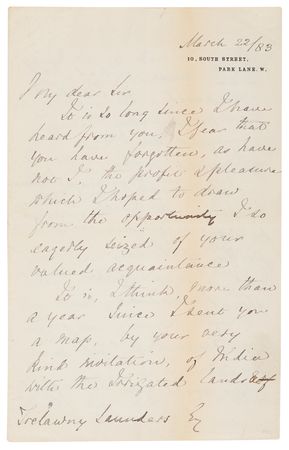 March 22/83
10, SOUTH STREET,
PARK LANE. W.
My dear Sir
It is so long since I have
heard from you, I fear that
you have forgotten, as have
not I, the profit & pleasure
which I hoped to draw
from the opportunity I so
eagerly seized of your
valued acquaintance
It is, I think, more than
a year since I sent you
a map, by your very
kind invitation, of India
with the Irrigated lands
Trelawny Saunders Esq